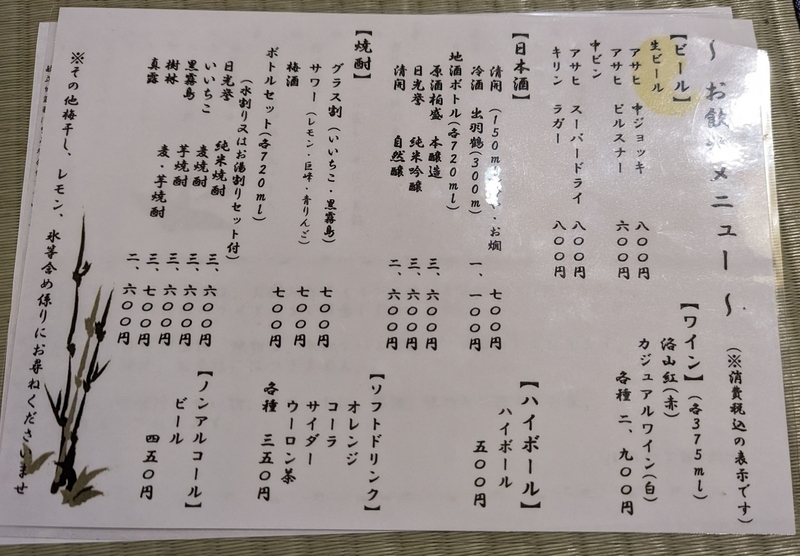 ～お飲物メニュー～
(※消費税込の表示です)
【ビール】
生ビール
アサヒ 中ジョッキ 八〇〇円
アサヒ ピルスナー 六〇〇円
中ビン
アサヒ スーパードライ 八〇〇円
キリン ラガー 八〇〇円
【日本酒】
清閑 (150m・お燗 七〇〇円
冷酒 出羽鶴(300ml) 一、一〇〇円
地酒ボトル(各720ml)
原酒柏盛 本醸造 三、六〇〇円
日光誉 純米吟醸 三、六〇〇円
清閑 自然醸 二、六〇〇円
【焼酎】
グラス割(いいちこ・黒霧島) 七〇〇円
サワー(レモン・巨峰・青りんご) 七〇〇円
梅酒 七〇〇円
ボトルセット(各720ml)
(水割り又はお湯割りセット付)
日光誉 純米焼酎 三、六〇〇円
いいちこ 麦焼酎 三、六〇〇円
黒霧島 芋焼酎 三、六〇〇円
樹林 麦・芋焼酎 三、七〇〇円
真露 二、六〇〇円
【ワイン】(各375ml)
洛山紅(赤)
カジュアルワイン(白)
各種 二、九〇〇円
【ハイボール】
ハイボール
五〇〇円
【ソフトドリンク】
オレンジ
コーラ
サイダー
ウーロン茶
各種 三五〇円
【ノンアルコール】
ビール
四五〇円
※その他梅干し、レモン、氷等含め係りにお尋ねくださいませ